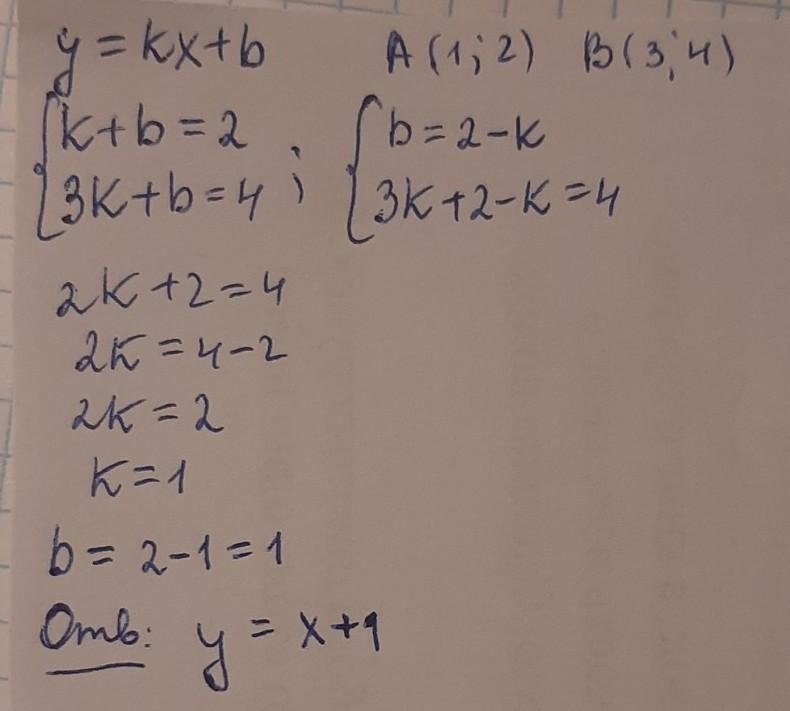 y = kx+b A(1;2) B(3;4)
{k+b=2 ; {b=2-k
{3k+b=4 {3k+2-k=4
2k+2=4
2k=4-2
2k=2
k=1
b=2-1=1
Отв: y=x+1